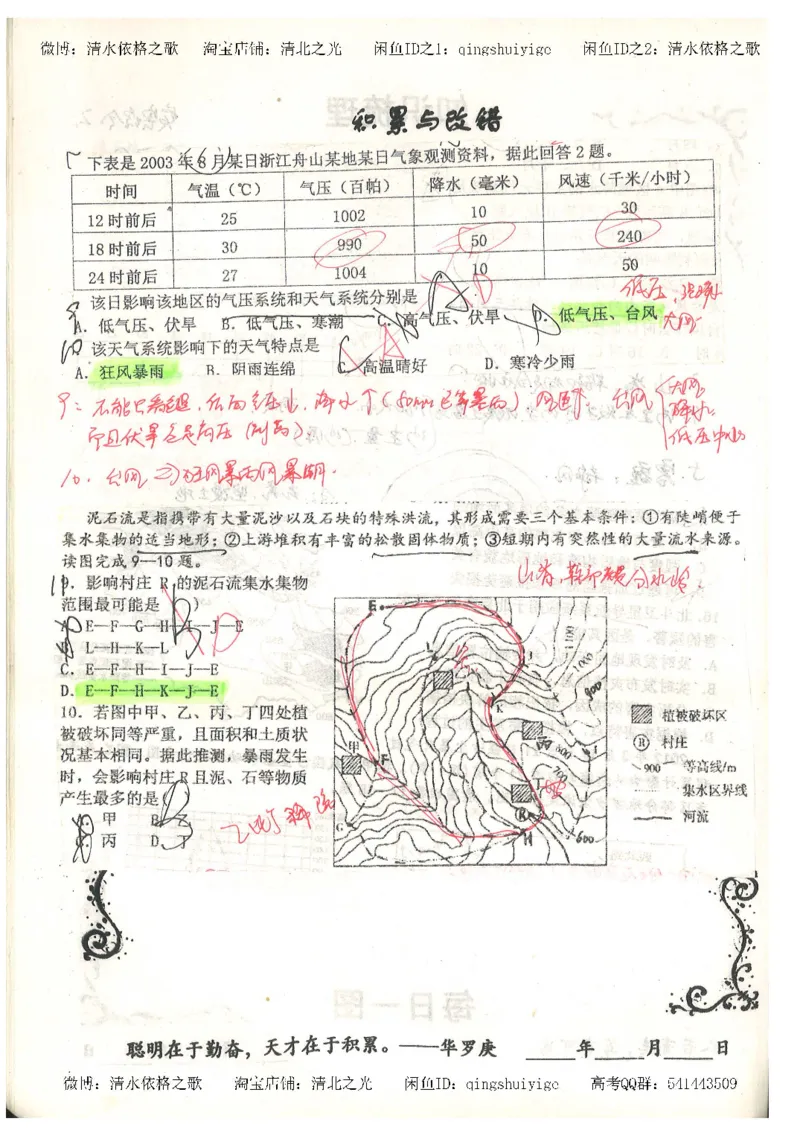 微博：清水依格之歌 淘宝店铺：清北之光 闲鱼ID之1：qingshuiyige 闲鱼ID之2：清水依格之歌
积累与改错
下表是 2003 年 8 月某日浙江舟山某地某日气象观测资料，据此回答 2 题。
时间 气温（℃） 气压（百帕） 降水（毫米） 风速（千米/小时）
12 时前后 25 1002 10 30
18 时前后 30 990 50 240
24 时前后 27 1004 10 50
该日影响该地区的气压系统和天气系统分别是
A．低气压、伏旱 B．低气压、寒潮 C．高气压、伏旱 D．低气压、台风
该天气系统影响下的天气特点是
A．狂风暴雨 B．阴雨连绵 C．高温晴好 D．寒冷少雨
台风
大风
降水
低压中心
10. 台风 狂风暴雨风暴潮.
泥石流是指携带有大量泥沙以及石块的特殊洪流，其形成需要三个基本条件：①有陡峭便于
集水集物的适当地形；②上游堆积有丰富的松散固体物质；③短期内有突然性的大量流水来源。
读图完成9—10题。
9．影响村庄 R 的泥石流集水集物
范围最可能是
A．E—F—G—H—I—J—E
B．L—H—K—L
C．E—F—H—I—J—E
D．E—F—H—K—J—E
10．若图中甲、乙、丙、丁四处植
被破坏同等严重，且面积和土质状
况基本相同。据此推测，暴雨发生
时，会影响村庄 R 且泥、石等物质
产生最多的是
A．甲 B．乙
C．丙 D．丁
E
L
K
甲
F
丙
G
R
H
I
1100
1000
900
800
700
600
植被破坏区
R 村庄
900 等高线/m
集水区界线
河流
聪明在于勤奋，天才在于积累。——华罗庚 年 月 日
微博：清水依格之歌 淘宝店铺：清北之光 闲鱼ID：qingshuiyige 高考QQ群：541443509